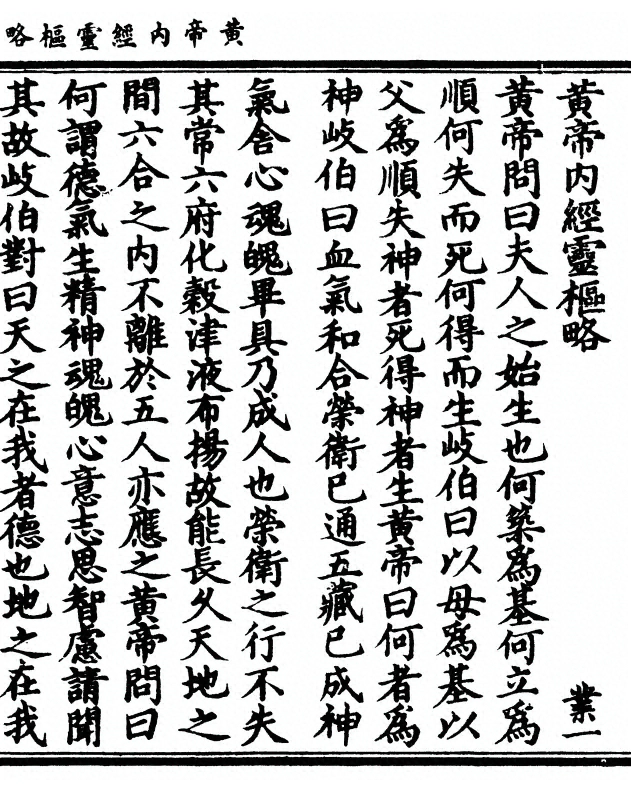 黄帝内經靈樞略
黄帝内經靈樞略 業一
黄帝問曰夫人之始生也何築爲基何立爲
順何失而死何得而生岐伯曰以母爲基以
父爲順失神者死得神者生黄帝曰何者爲
神岐伯曰血氣和合榮衛已通五藏已成神
氣舍心魂魄畢具乃成人也榮衛之行不失
其常六府化穀津液布揚故能長久天地之
間六合之内不離於五人亦應之黄帝問曰
何謂德氣生精神魂魄心意志思智慮請聞
其故岐伯對曰天之在我者德也地之在我